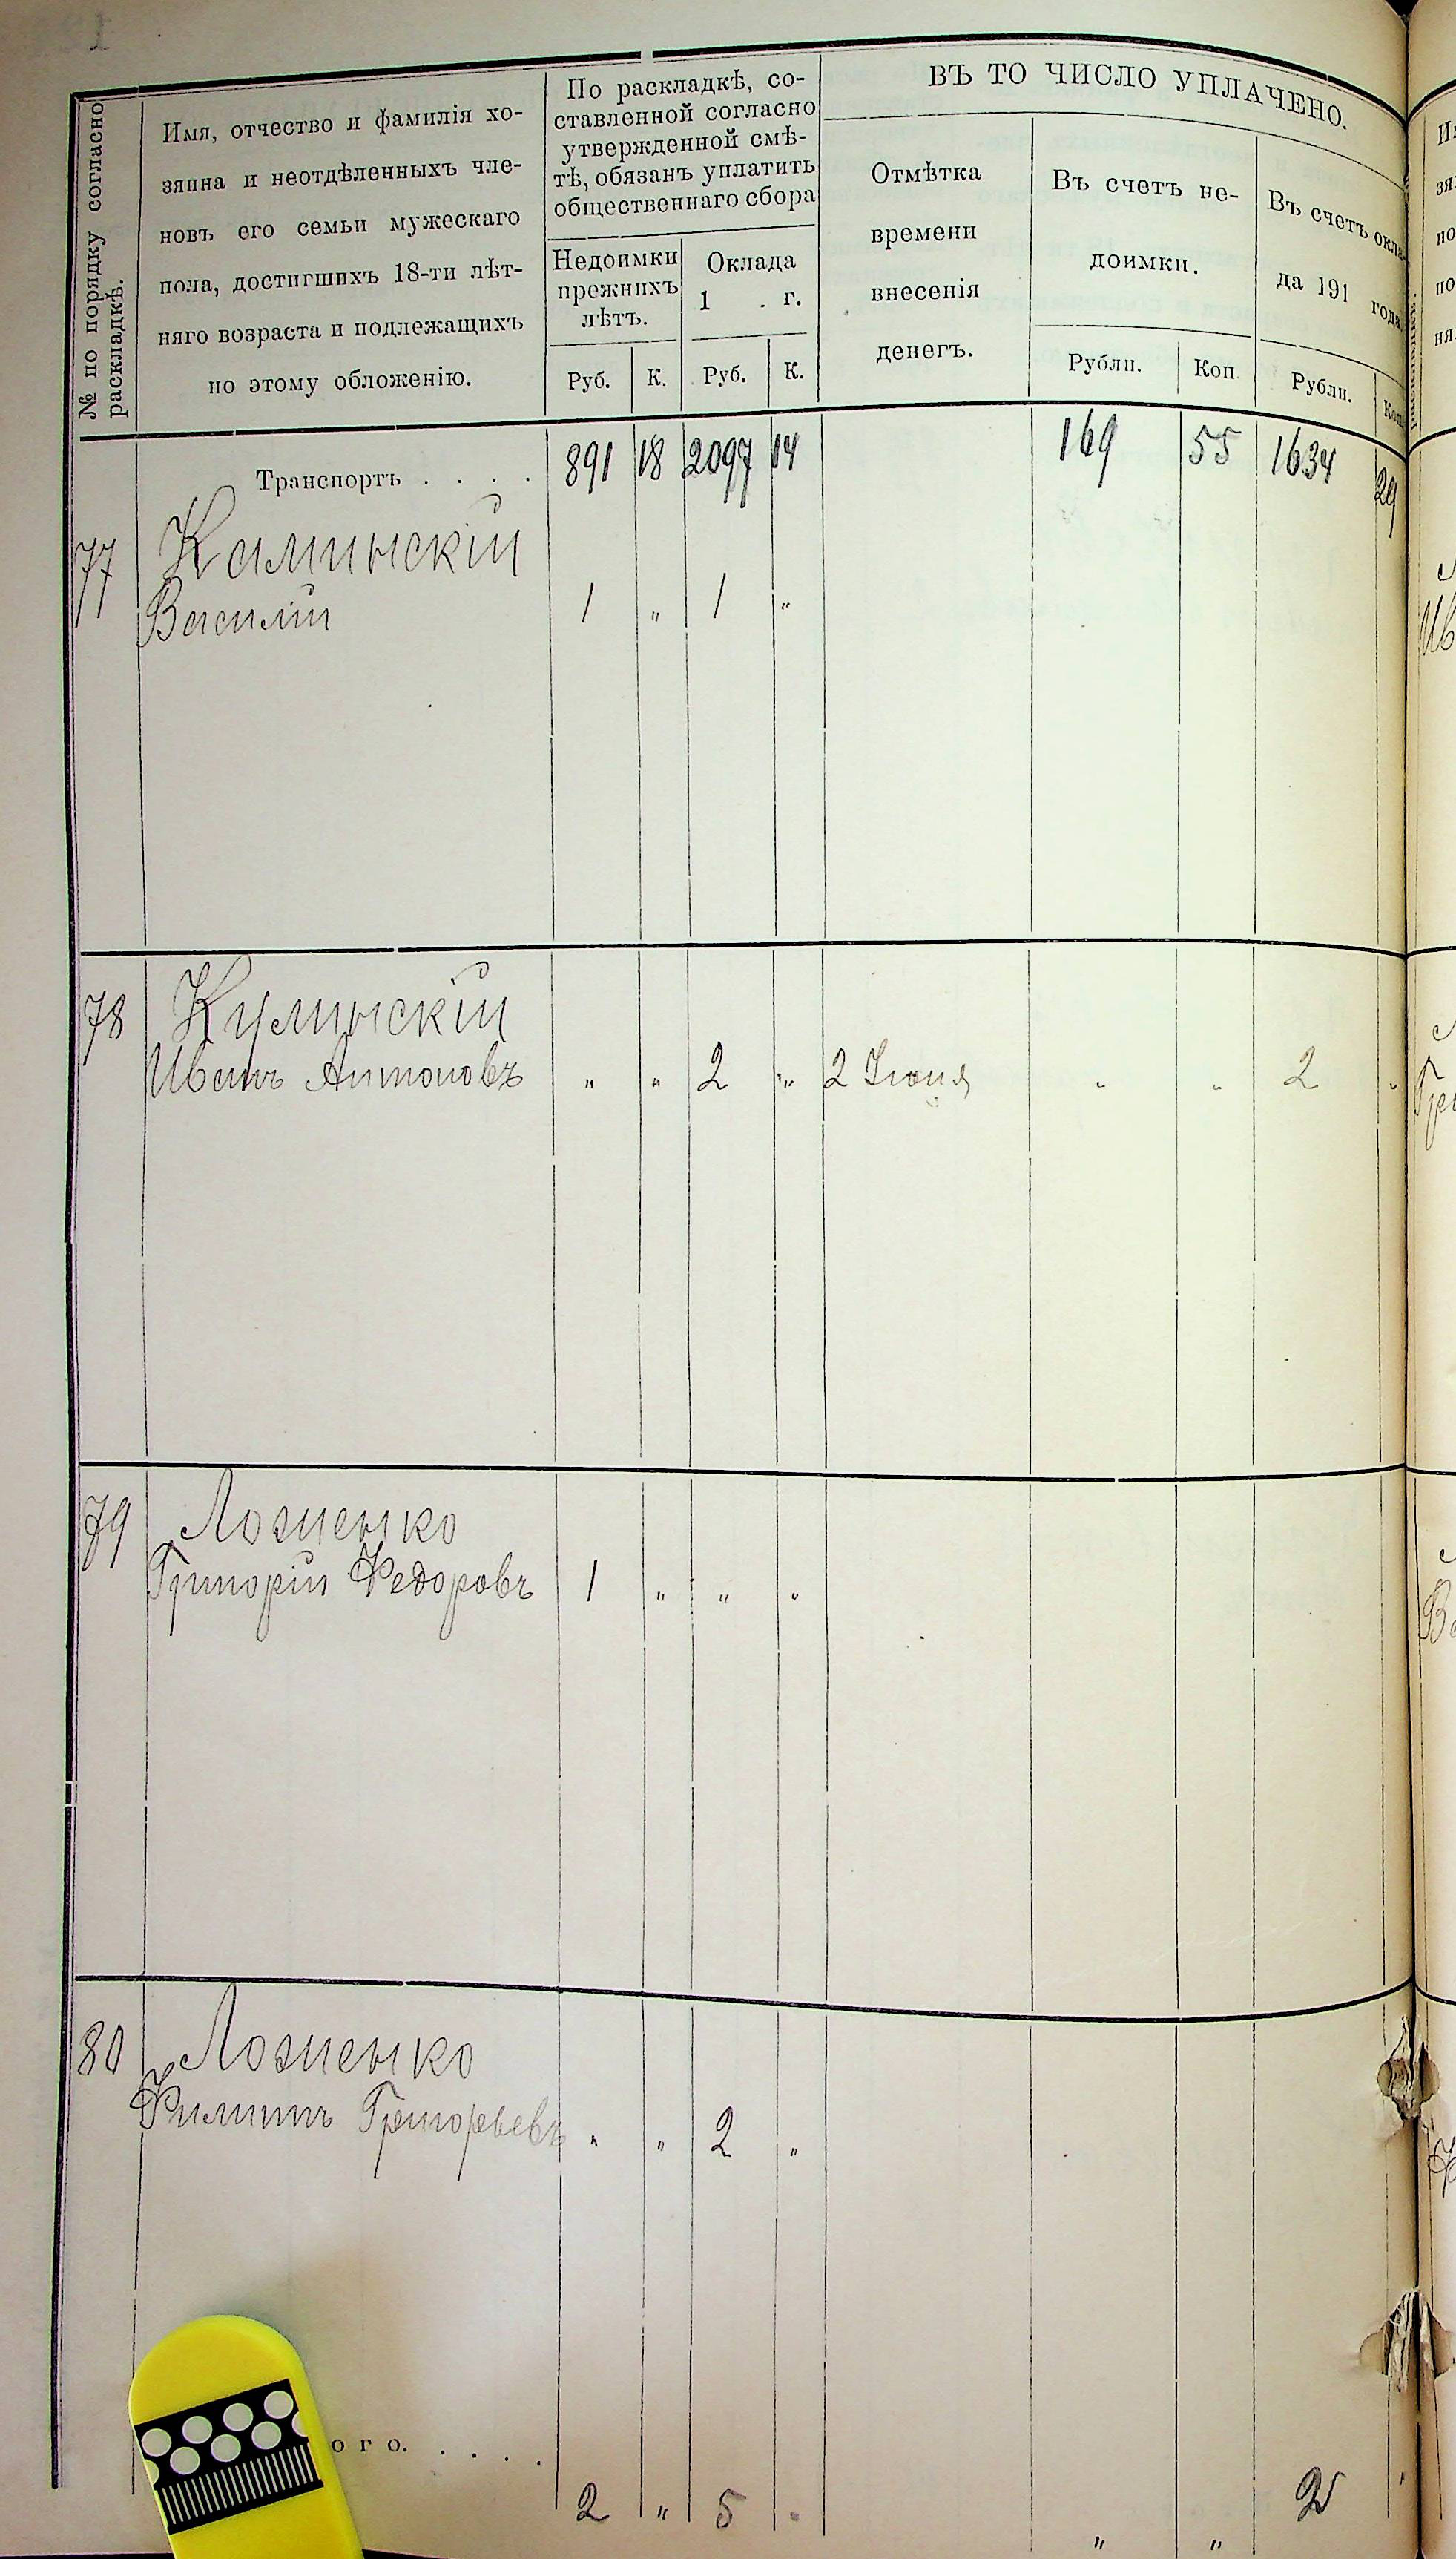 № по порядку согласно
раскладкѣ.
Имя, отчество и фамилія хо-
зяина и неотдѣленныхъ чле-
новъ его семьи мужескаго
пола, достигшихъ 18-ти лѣт-
няго возраста и подлежащихъ
по этому обложенію.
По раскладкѣ, со-
ставленной согласно
утвержденной смѣ-
тѣ, обязанъ уплатить
общественнаго сбора
Недоимки
прежнихъ
лѣтъ.
Руб. К.
Оклада
1 . г.
Руб. К.
ВЪ ТО ЧИСЛО УПЛАЧЕНО.
Отмѣтка
времени
внесенія
денегъ.
Въ счетъ не-
доимки.
Рубли. Коп
Въ счетъ окла-
да 191 года.
Рубли. Коп.
Транспортъ . . . . 891 18 2097 14 169 55 1634 29
77 Калинскій
Василій 1 „ 1 „
78 Кулинскій
Иванъ Антоновъ „ „ 2 „ 2 Іюня „ „ 2 „
79 Лозиенко
Григорій Федоровъ 1 „ „ „
80 Лозиенко
Филиппъ Григорьевъ „ „ 2 „
ого. . . . .
2 „ 5 „ „ „ 2 „